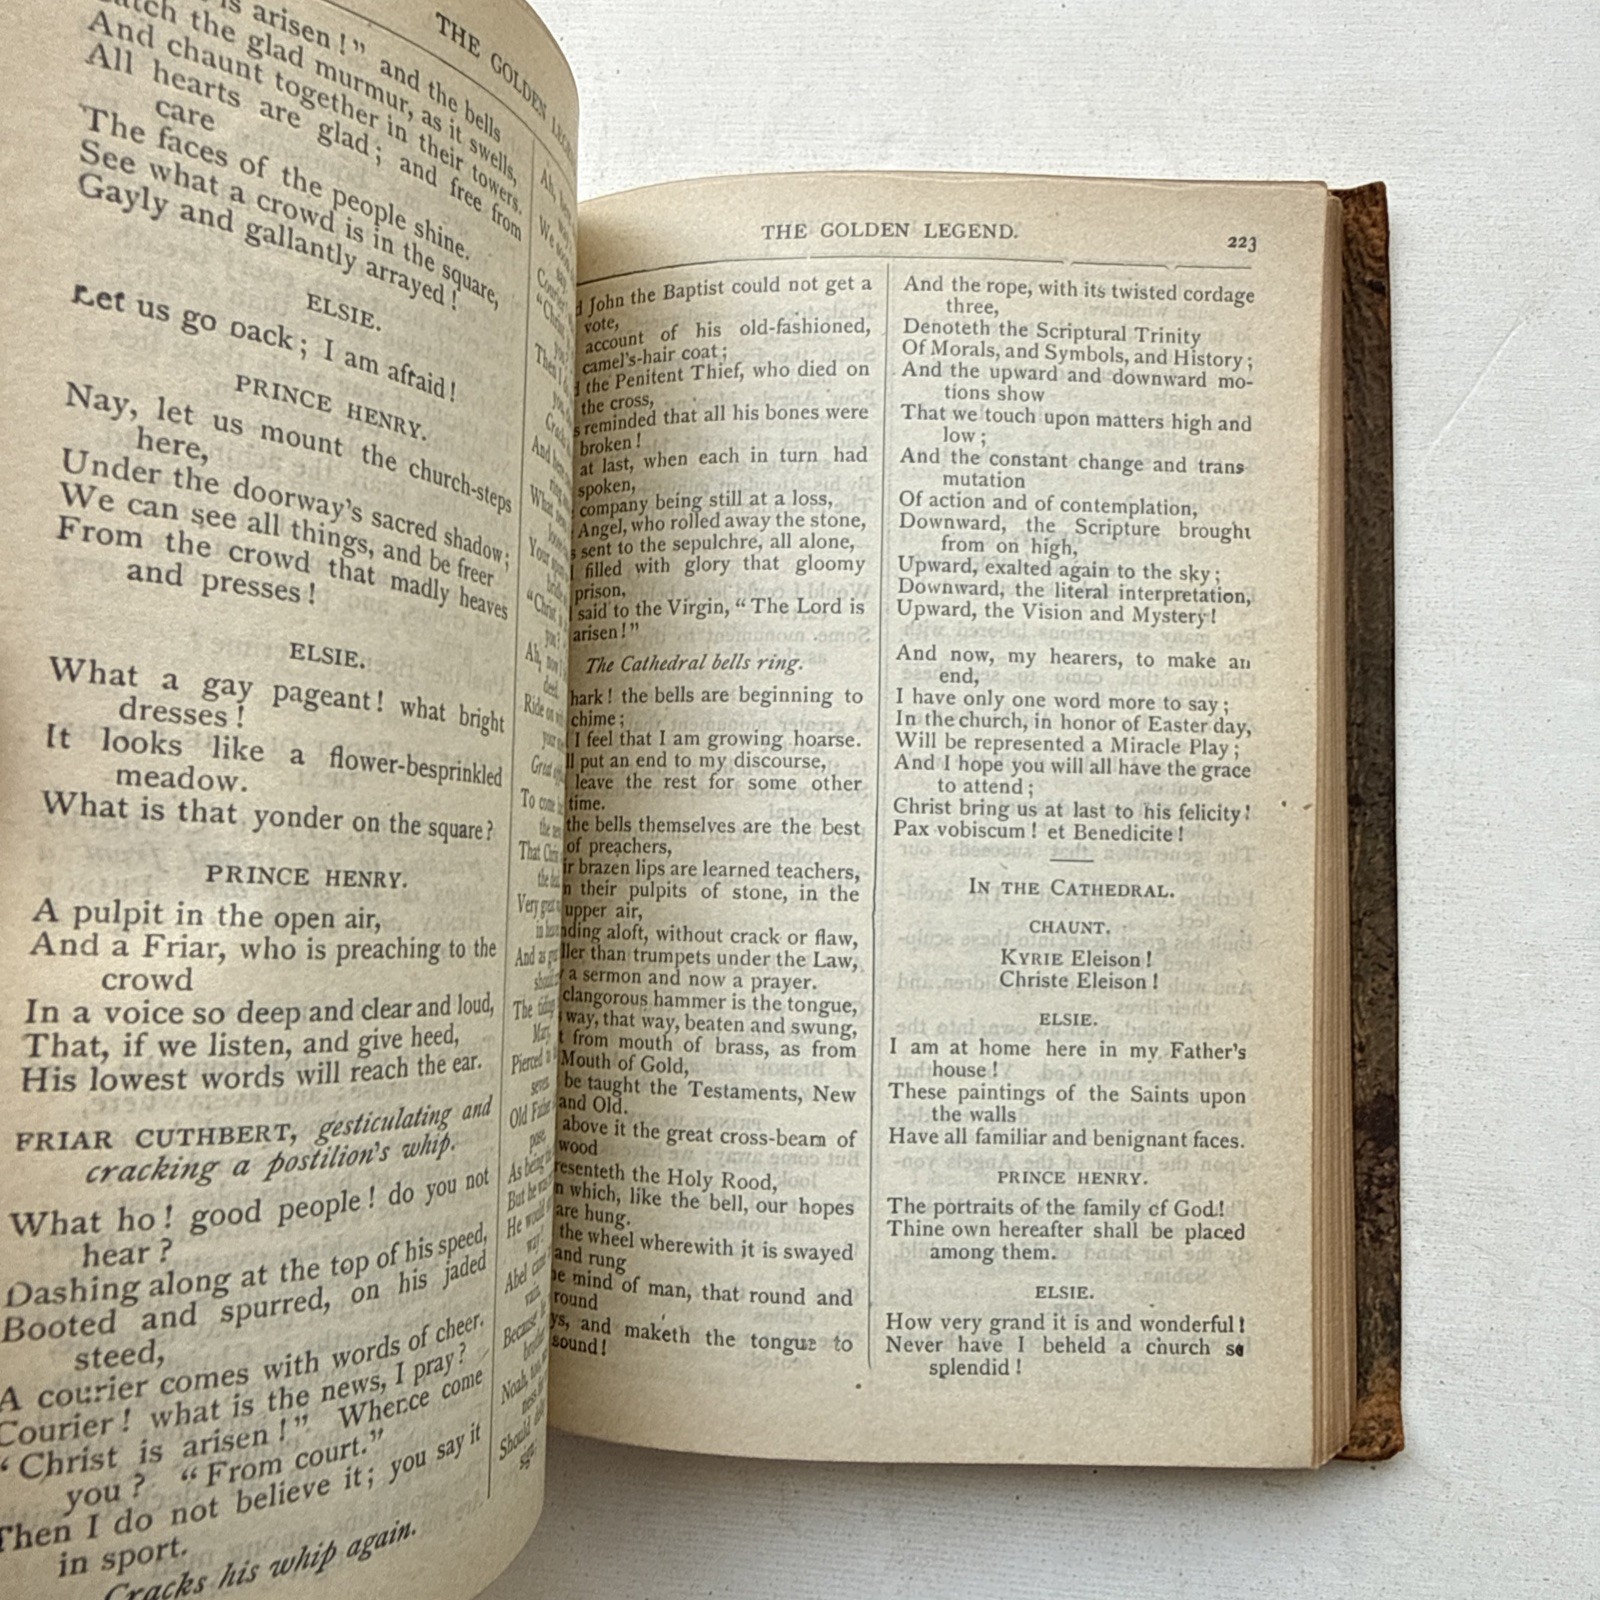 THE GOLDEN LEGEND
is arisen!” and the bells
the glad murmur, as it swells,
And chaunt together in their towers.
All hearts are glad; and free from
care
The faces of the people shine.
See what a crowd is in the square,
Gayly and gallantly arrayed!
ELSIE.
Let us go back; I am afraid!
PRINCE HENRY.
Nay, let us mount the church-steps
here,
Under the doorway's sacred shadow;
We can see all things, and be freer
From the crowd that madly heaves
and presses!
ELSIE.
What a gay pageant! what bright
dresses!
It looks like a flower-besprinkled
meadow.
What is that yonder on the square?
PRINCE HENRY.
A pulpit in the open air,
And a Friar, who is preaching to the
crowd
In a voice so deep and clear and loud,
That, if we listen, and give heed,
His lowest words will reach the ear.
FRIAR CUTHBERT, gesticulating and
cracking a postilion's whip.
What ho! good people! do you not
hear?
Dashing along at the top of his speed,
Booted and spurred, on his jaded
steed,
A courier comes with words of cheer.
Courier! what is the news, I pray?
“Christ is arisen!” Whence come
you? “From court.”
Then I do not believe it; you say it
in sport.
Cracks his whip again.
THE GOLDEN LEGEND.
223
John the Baptist could not get a
vote,
account of his old-fashioned,
camel's-hair coat;
the Penitent Thief, who died on
the cross,
reminded that all his bones were
broken!
at last, when each in turn had
spoken,
company being still at a loss,
Angel, who rolled away the stone,
sent to the sepulchre, all alone,
filled with glory that gloomy
prison,
said to the Virgin, “The Lord is
arisen!”
The Cathedral bells ring.
hark! the bells are beginning to
chime;
I feel that I am growing hoarse.
put an end to my discourse,
leave the rest for some other
time.
the bells themselves are the best
of preachers,
brazen lips are learned teachers,
their pulpits of stone, in the
upper air,
aloft, without crack or flaw,
than trumpets under the Law,
a sermon and now a prayer.
clangorous hammer is the tongue,
way, that way, beaten and swung,
from mouth of brass, as from
Mouth of Gold,
be taught the Testaments, New
and Old.
above it the great cross-beam of
wood
the Holy Rood,
which, like the bell, our hopes
are hung.
the wheel wherewith it is swayed
and rung
mind of man, that round and
round
and maketh the tongue to
sound!
And the rope, with its twisted cordage
three,
Denoteth the Scriptural Trinity
Of Morals, and Symbols, and History;
And the upward and downward mo-
tions show
That we touch upon matters high and
low;
And the constant change and trans-
mutation
Of action and of contemplation,
Downward, the Scripture brought
from on high,
Upward, exalted again to the sky;
Downward, the literal interpretation,
Upward, the Vision and Mystery!
And now, my hearers, to make an
end,
I have only one word more to say;
In the church, in honor of Easter day,
Will be represented a Miracle Play;
And I hope you will all have the grace
to attend;
Christ bring us at last to his felicity!
Pax vobiscum! et Benedicite!
IN THE CATHEDRAL.
CHAUNT.
KYRIE Eleison!
Christe Eleison!
ELSIE.
I am at home here in my Father's
house!
These paintings of the Saints upon
the walls
Have all familiar and benignant faces.
PRINCE HENRY.
The portraits of the family of God!
Thine own hereafter shall be placed
among them.
ELSIE.
How very grand it is and wonderful!
Never have I beheld a church so
splendid!